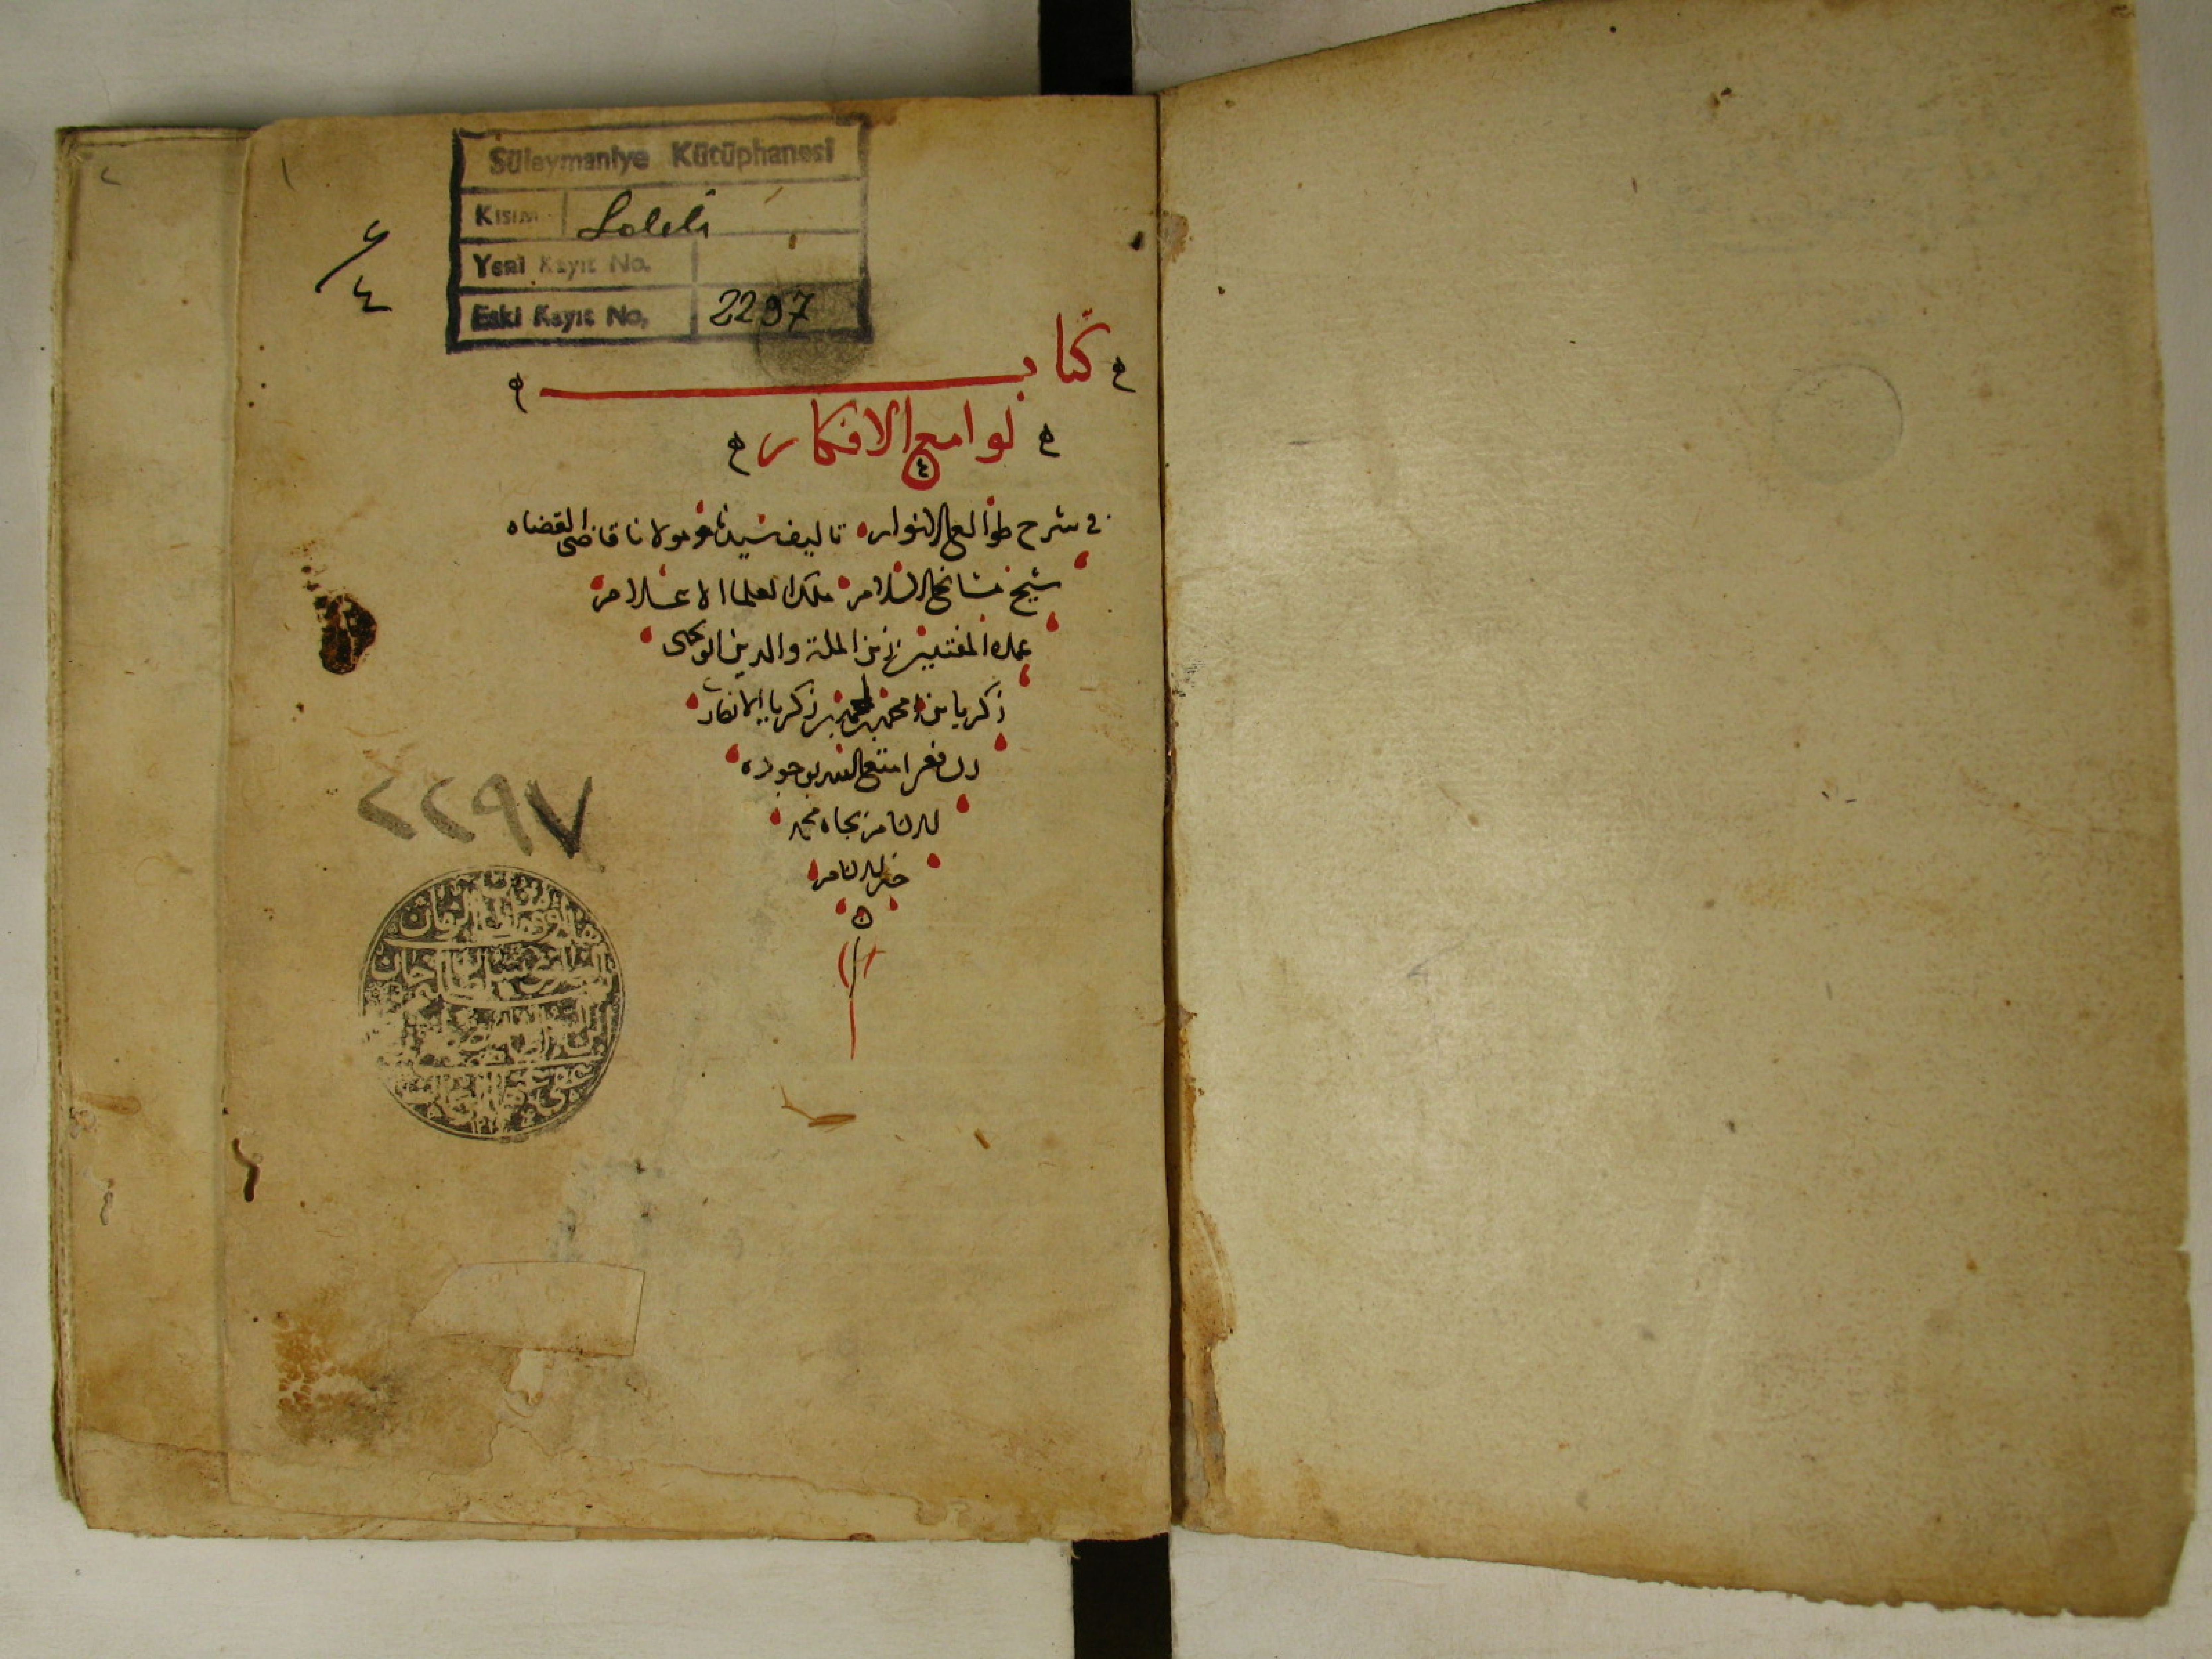 Süleymaniye Kütüphanesi
Kısım Laleli
Yeni Kayıt No.
Eski Kayıt No. 2297
٢
٤
كتاب
لوامع الافكار
في شرح طوالع الانوار تاليف سيدنا ومولانا قاضي القضاه
شيخ مشائخ الاسلام ملك العلما الاعلام
عمدة المفتيين زين الملة والدين ابو يحيى
زكريا بن محمد بن احمد بن زكريا الانصاري
بوجوده
الانام بجاه محمد
خير الانام
٢٢٩٧